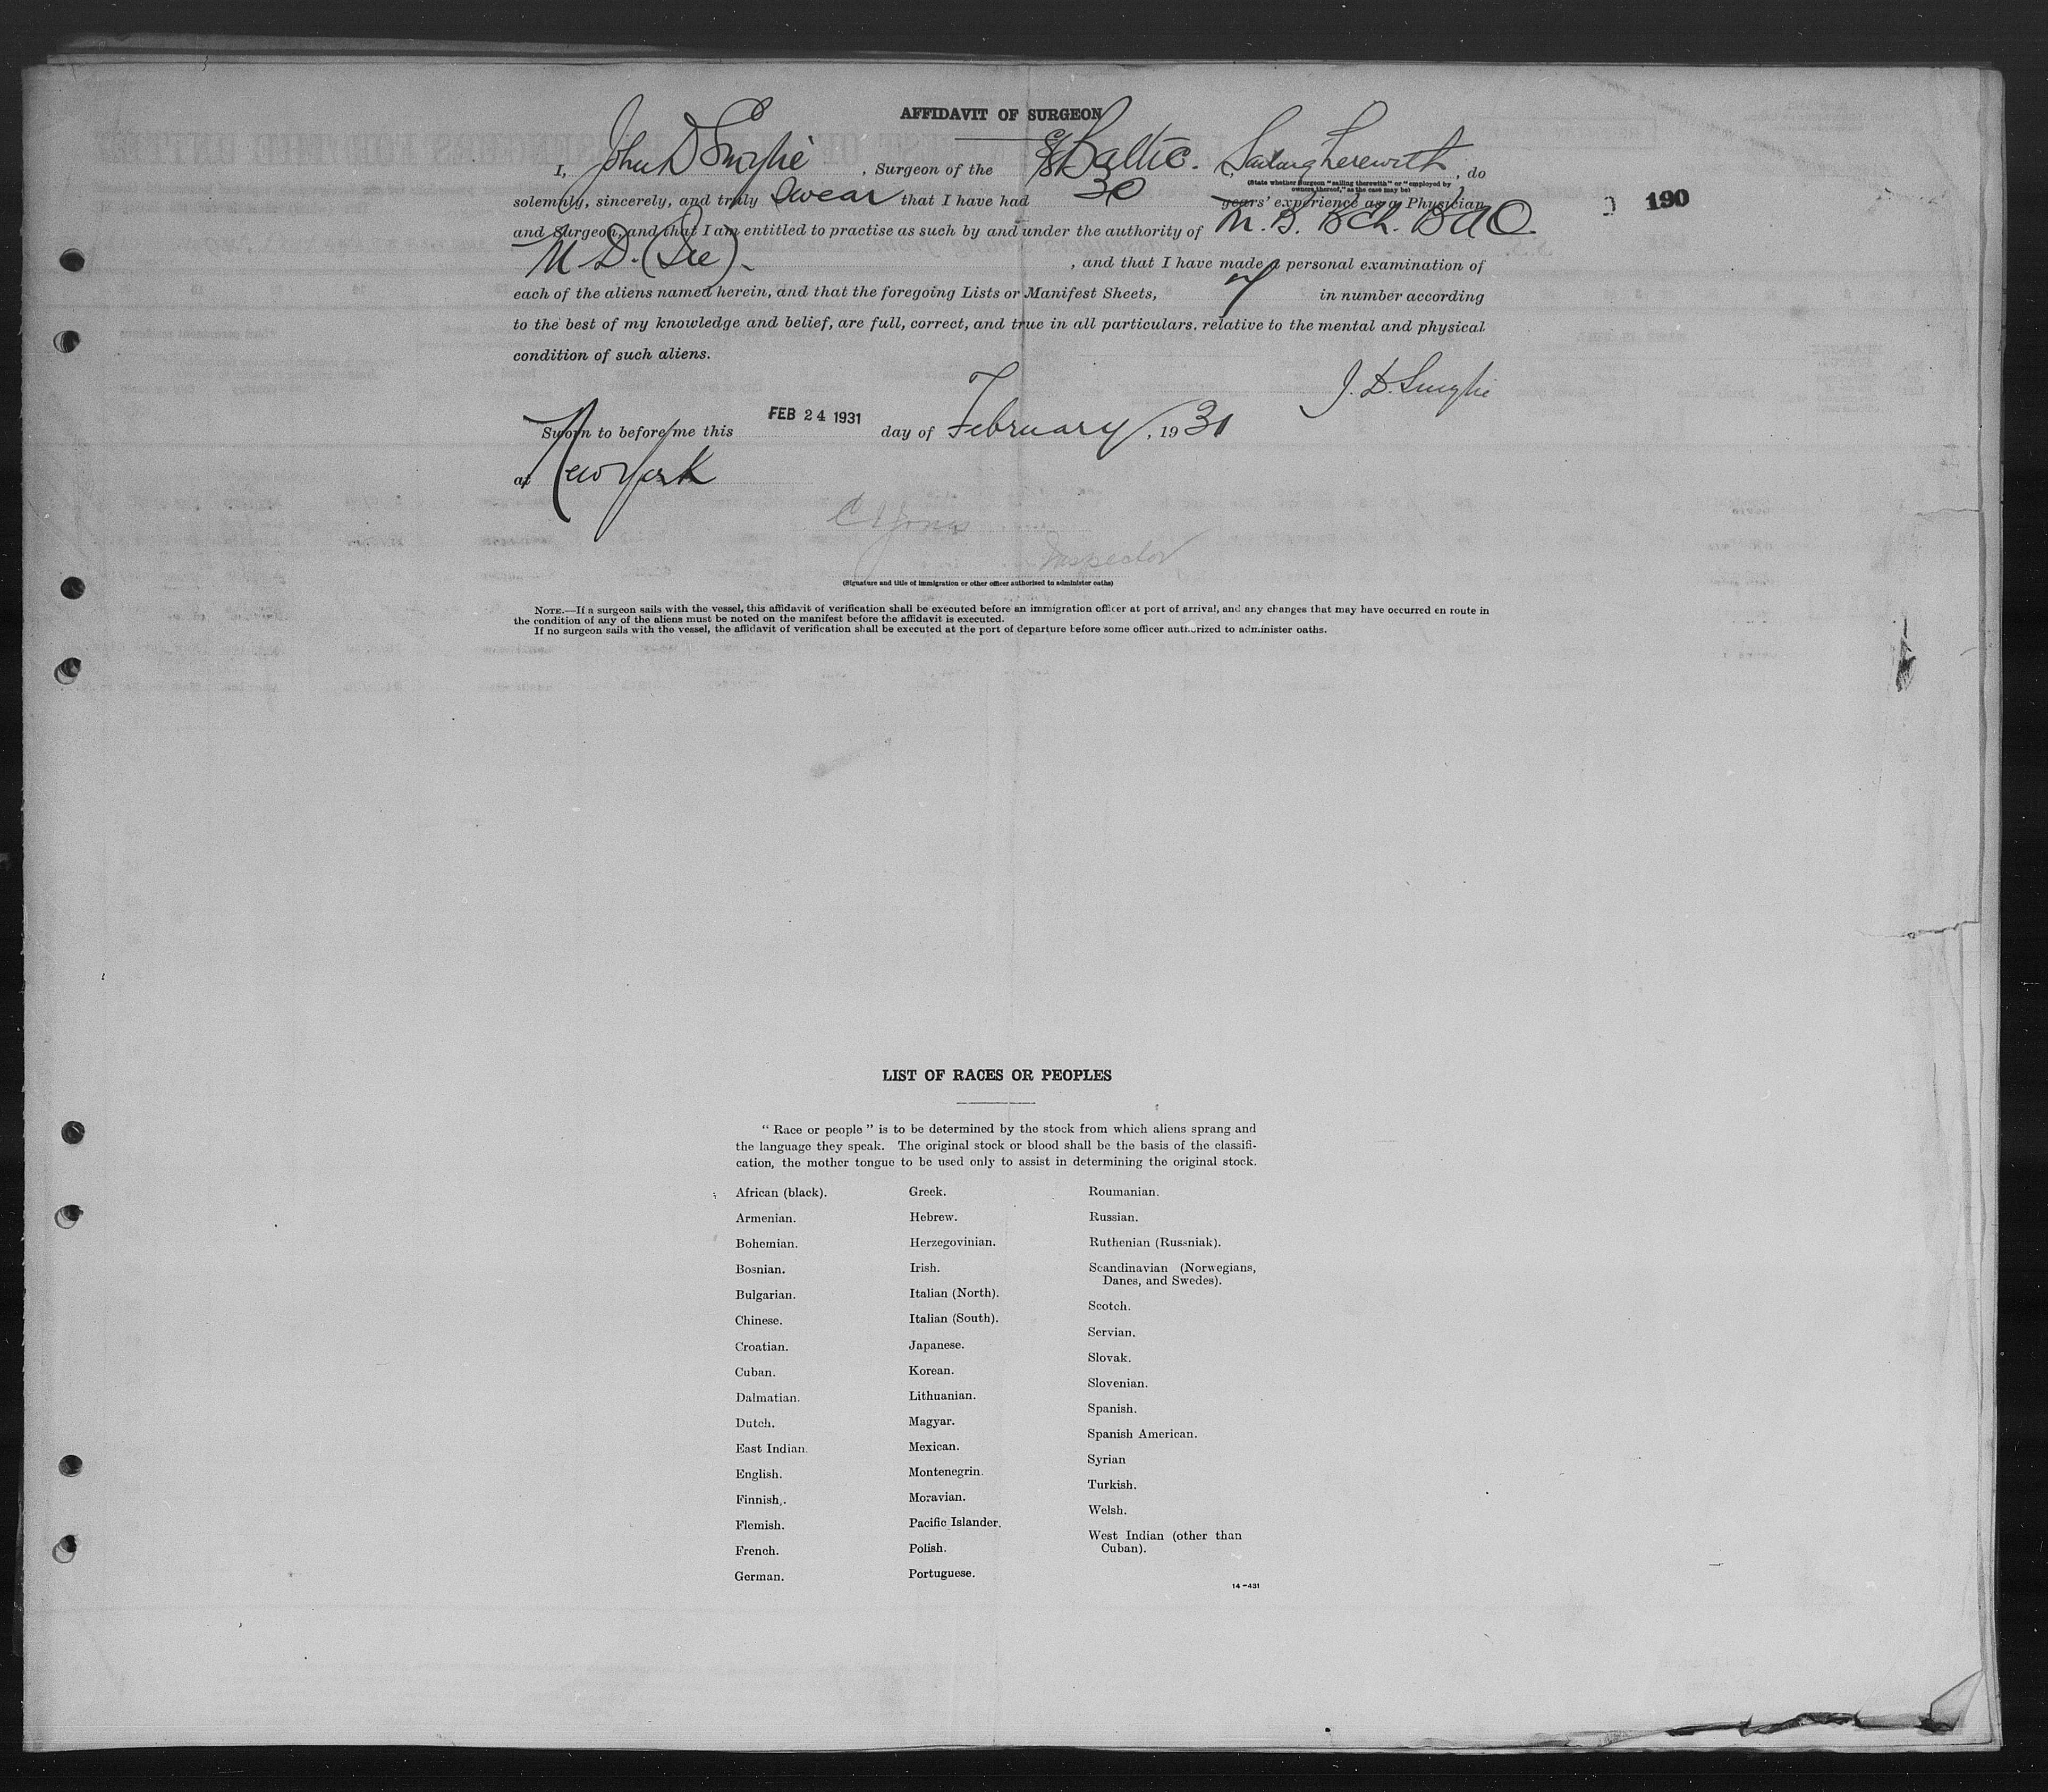 AFFIDAVIT OF SURGEON
I, John D Smylie, Surgeon of the S/S Baltic. Sailing therewith, do
(State whether Surgeon "sailing therewith" or "employed by
owners thereof," as the case may be)
solemnly, sincerely, and truly swear that I have had 30 years' experience as a Physician
190
and Surgeon, and that I am entitled to practise as such by and under the authority of M.B. BCh. BAO.
M.D. , and that I have made a personal examination of
each of the aliens named herein, and that the foregoing Lists or Manifest Sheets, in number according
to the best of my knowledge and belief, are full, correct, and true in all particulars, relative to the mental and physical
condition of such aliens.
J. D. Smylie
Sworn to before me this FEB 24 1931 day of February, 1931
at New York
Inspector
(Signature and title of immigration or other officer authorised to administer oaths)
NOTE.—If a surgeon sails with the vessel, this affidavit of verification shall be executed before an immigration officer at port of arrival, and any changes that may have occurred en route in
the condition of any of the aliens must be noted on the manifest before the affidavit is executed.
If no surgeon sails with the vessel, the affidavit of verification shall be executed at the port of departure before some officer authorized to administer oaths.
LIST OF RACES OR PEOPLES
"Race or people" is to be determined by the stock from which aliens sprang and
the language they speak. The original stock or blood shall be the basis of the classifi-
cation, the mother tongue to be used only to assist in determining the original stock.
African (black).
Armenian.
Bohemian.
Bosnian.
Bulgarian.
Chinese.
Croatian.
Cuban.
Dalmatian.
Dutch.
East Indian.
English.
Finnish.
Flemish.
French.
German.
Greek.
Hebrew.
Herzegovinian.
Irish.
Italian (North).
Italian (South).
Japanese.
Korean.
Lithuanian.
Magyar.
Mexican.
Montenegrin.
Moravian.
Pacific Islander.
Polish.
Portuguese.
Roumanian.
Russian.
Ruthenian (Russniak).
Scandinavian (Norwegians,
Danes, and Swedes).
Scotch.
Servian.
Slovak.
Slovenian.
Spanish.
Spanish American.
Syrian
Turkish.
Welsh.
West Indian (other than
Cuban).
14-431